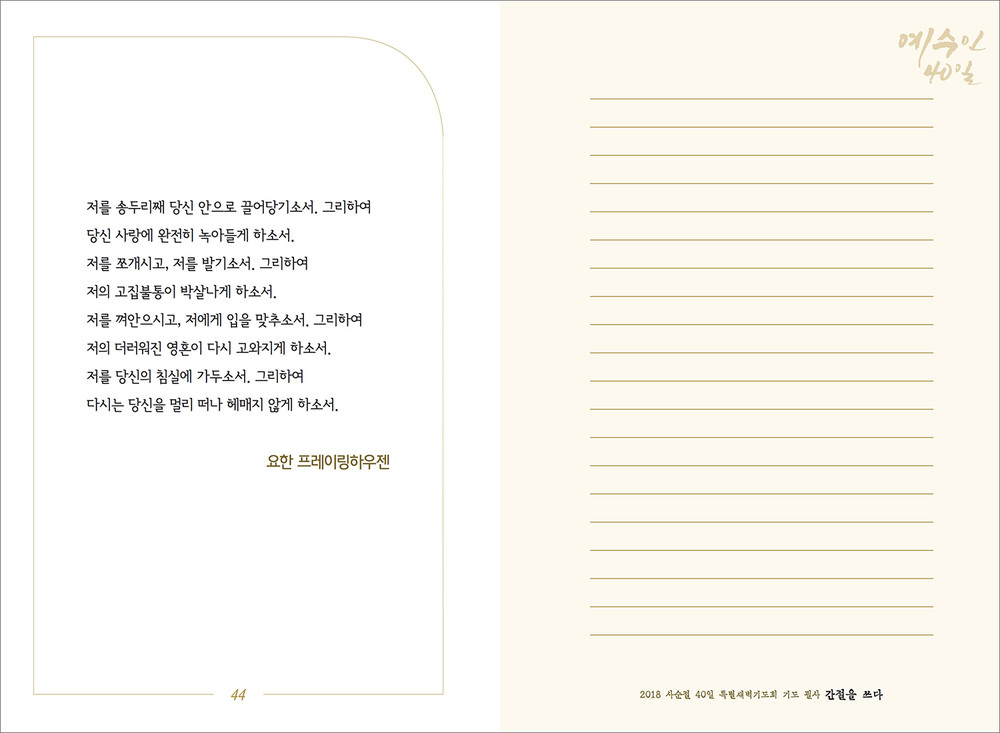 저를 송두리째 당신 안으로 끌어당기소서. 그리하여
당신 사랑에 완전히 녹아들게 하소서.
저를 쪼개시고, 저를 발기소서. 그리하여
저의 고집불통이 박살나게 하소서.
저를 껴안으시고, 저에게 입을 맞추소서. 그리하여
저의 더러워진 영혼이 다시 고와지게 하소서.
저를 당신의 침실에 가두소서. 그리하여
다시는 당신을 멀리 떠나 헤매지 않게 하소서.
요한 프레이링하우젠
44
예수인
40일
2018 사순절 40일 특별새벽기도회 기도 필사 간절을 쓰다